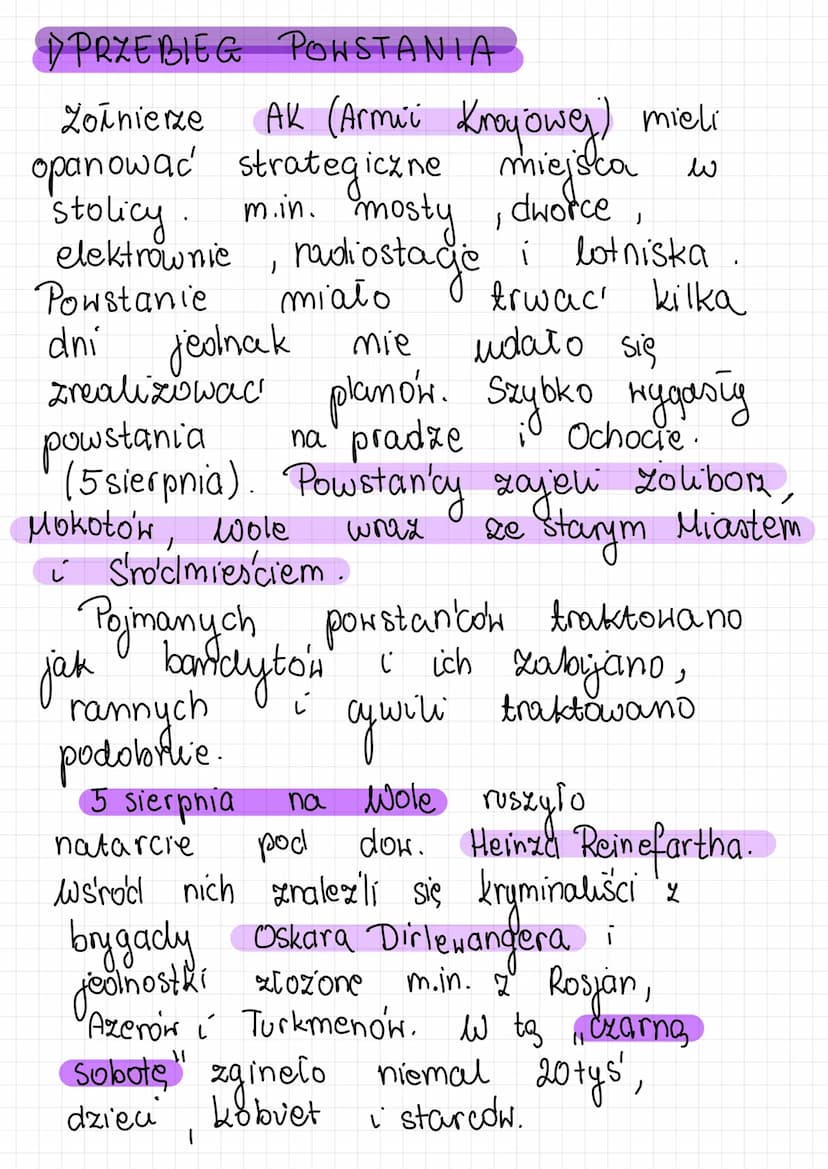 ▷ PRZEBIEG POWSTANIA
Żołnierze AK (Armii Krajowej) mieli
opanować strategiczne miejsca w
stolicy. m.in. mosty, dworce,
elektrownie, radiostacje i lotniska.
Powstanie miało trwać kilka
dni jednak nie udało się
zrealizować planów. Szybko wygasły
powstania na pradze i Ochocie.
(5 sierpnia). Powstańcy zajeli Żoliborz,
Mokotów, Wole wraz ze Starym Miastem
i Śródmieściem.
Pojmanych powstańców traktowano
jak bandytów i ich zabijano,
rannych i cywili traktowano
podobnie.
5 sierpnia na Wole ruszyło
natarcie pod dow. Heinza Reinefartha.
Wśród nich znaleźli się kryminaliści z
brygady Oskara Dirlewangera i
jednostki złożone m.in. z Rosjan,
Azerów i Turkmenów. W tą „czarną
sobotę" zgineło niemal 20 tyś,
dzieci, kobiet i starców.